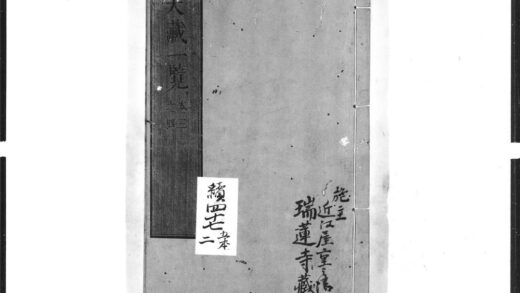 大藏一覽
三
四
施主
近江屋重
瑞蓮寺藏
續四七
二